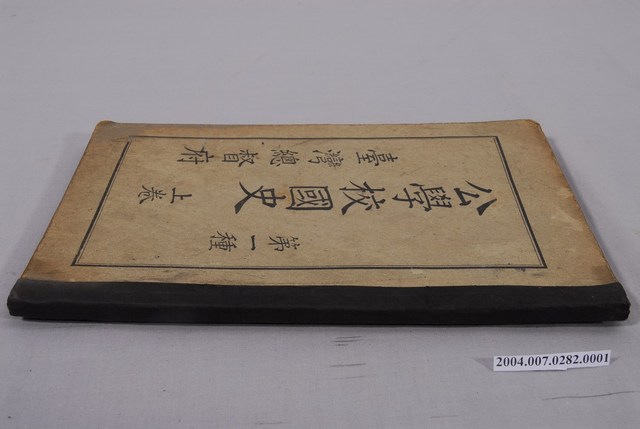 第一種
公學校國史 上卷
臺灣總督府
2004.007.0282.0001